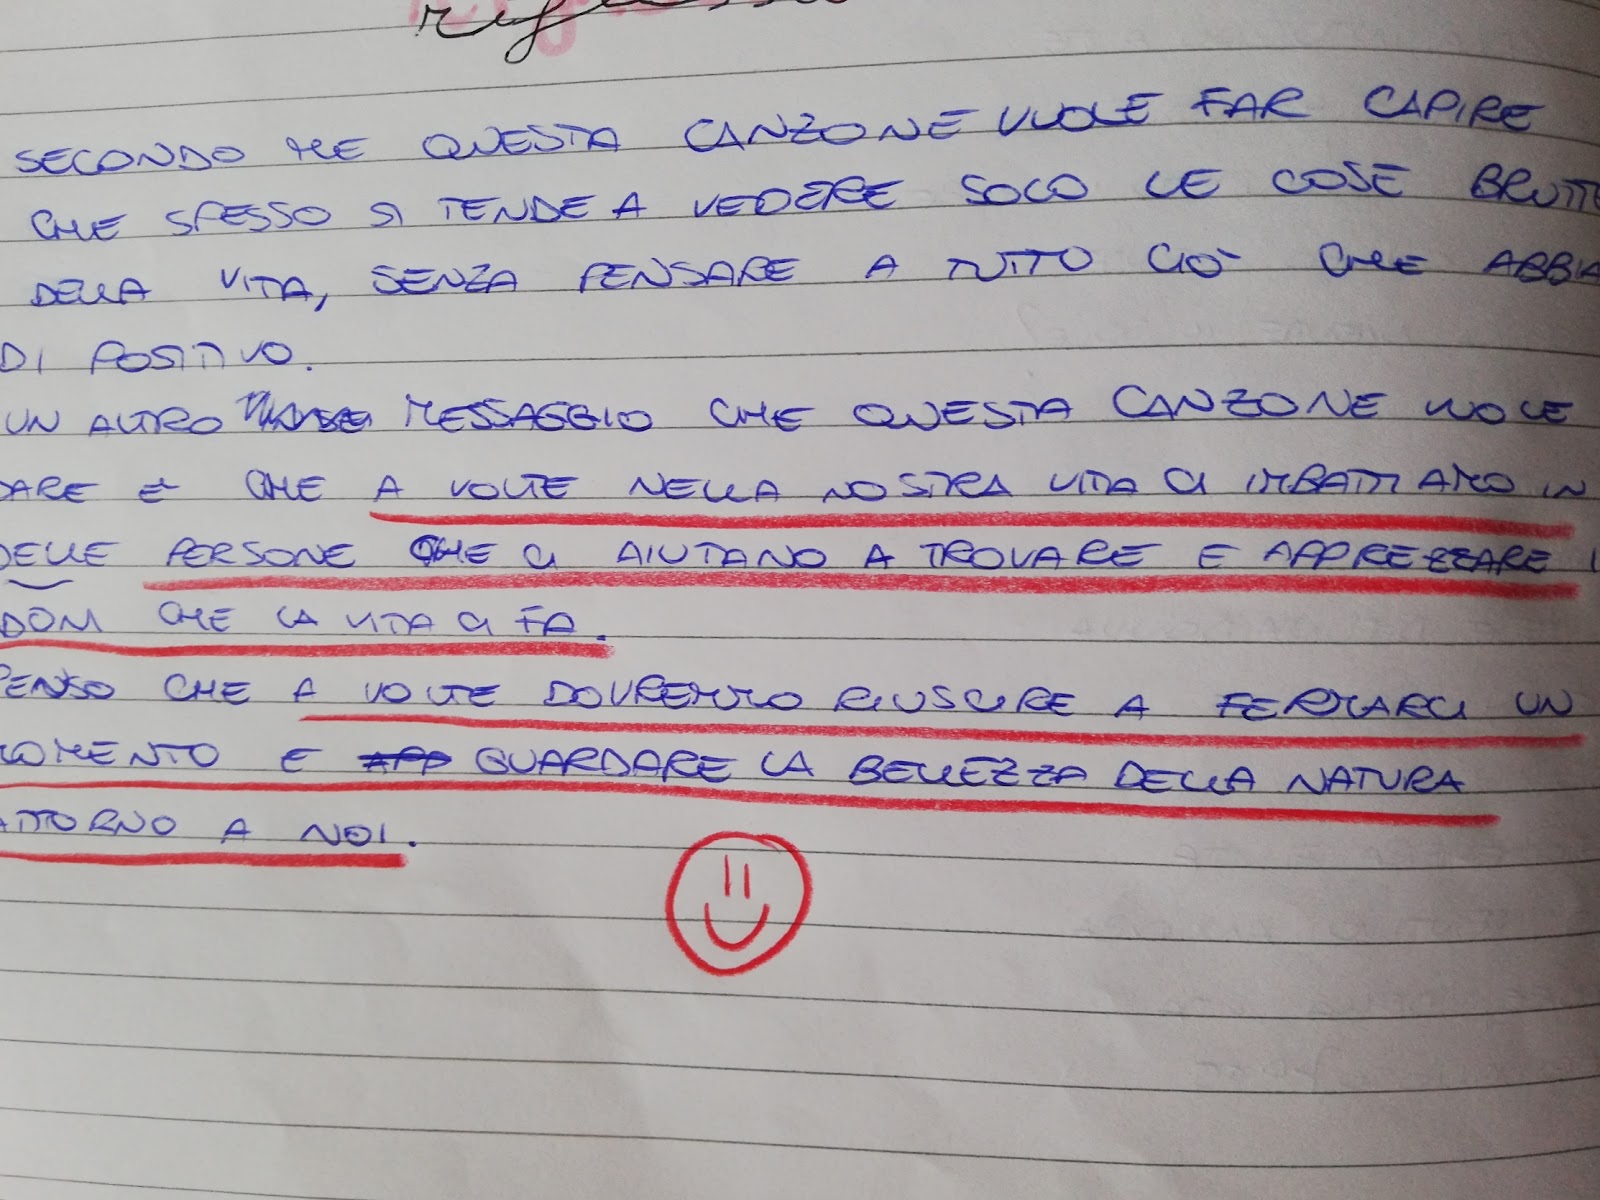 SECONDO ME QUESTA CANZONE VUOLE FAR CAPIRE
CHE SPESSO SI TENDE A VEDERE SOLO LE COSE BRUTTE
DELLA VITA, SENZA PENSARE A TUTTO CIÒ CHE ABBIA
DI POSITIVO.
UN ALTRO MESSAGGIO CHE QUESTA CANZONE VUOLE
DARE È CHE A VOLTE NELLA NOSTRA VITA CI IMBATTIAMO IN
DELLE PERSONE CHE CI AIUTANO A TROVARE E APPREZZARE I
DONI CHE LA VITA CI FA.
PENSO CHE A VOLTE DOVREMMO RIUSCIRE A FERMARCI UN
MOMENTO E GUARDARE LA BELLEZZA DELLA NATURA
ATTORNO A NOI.